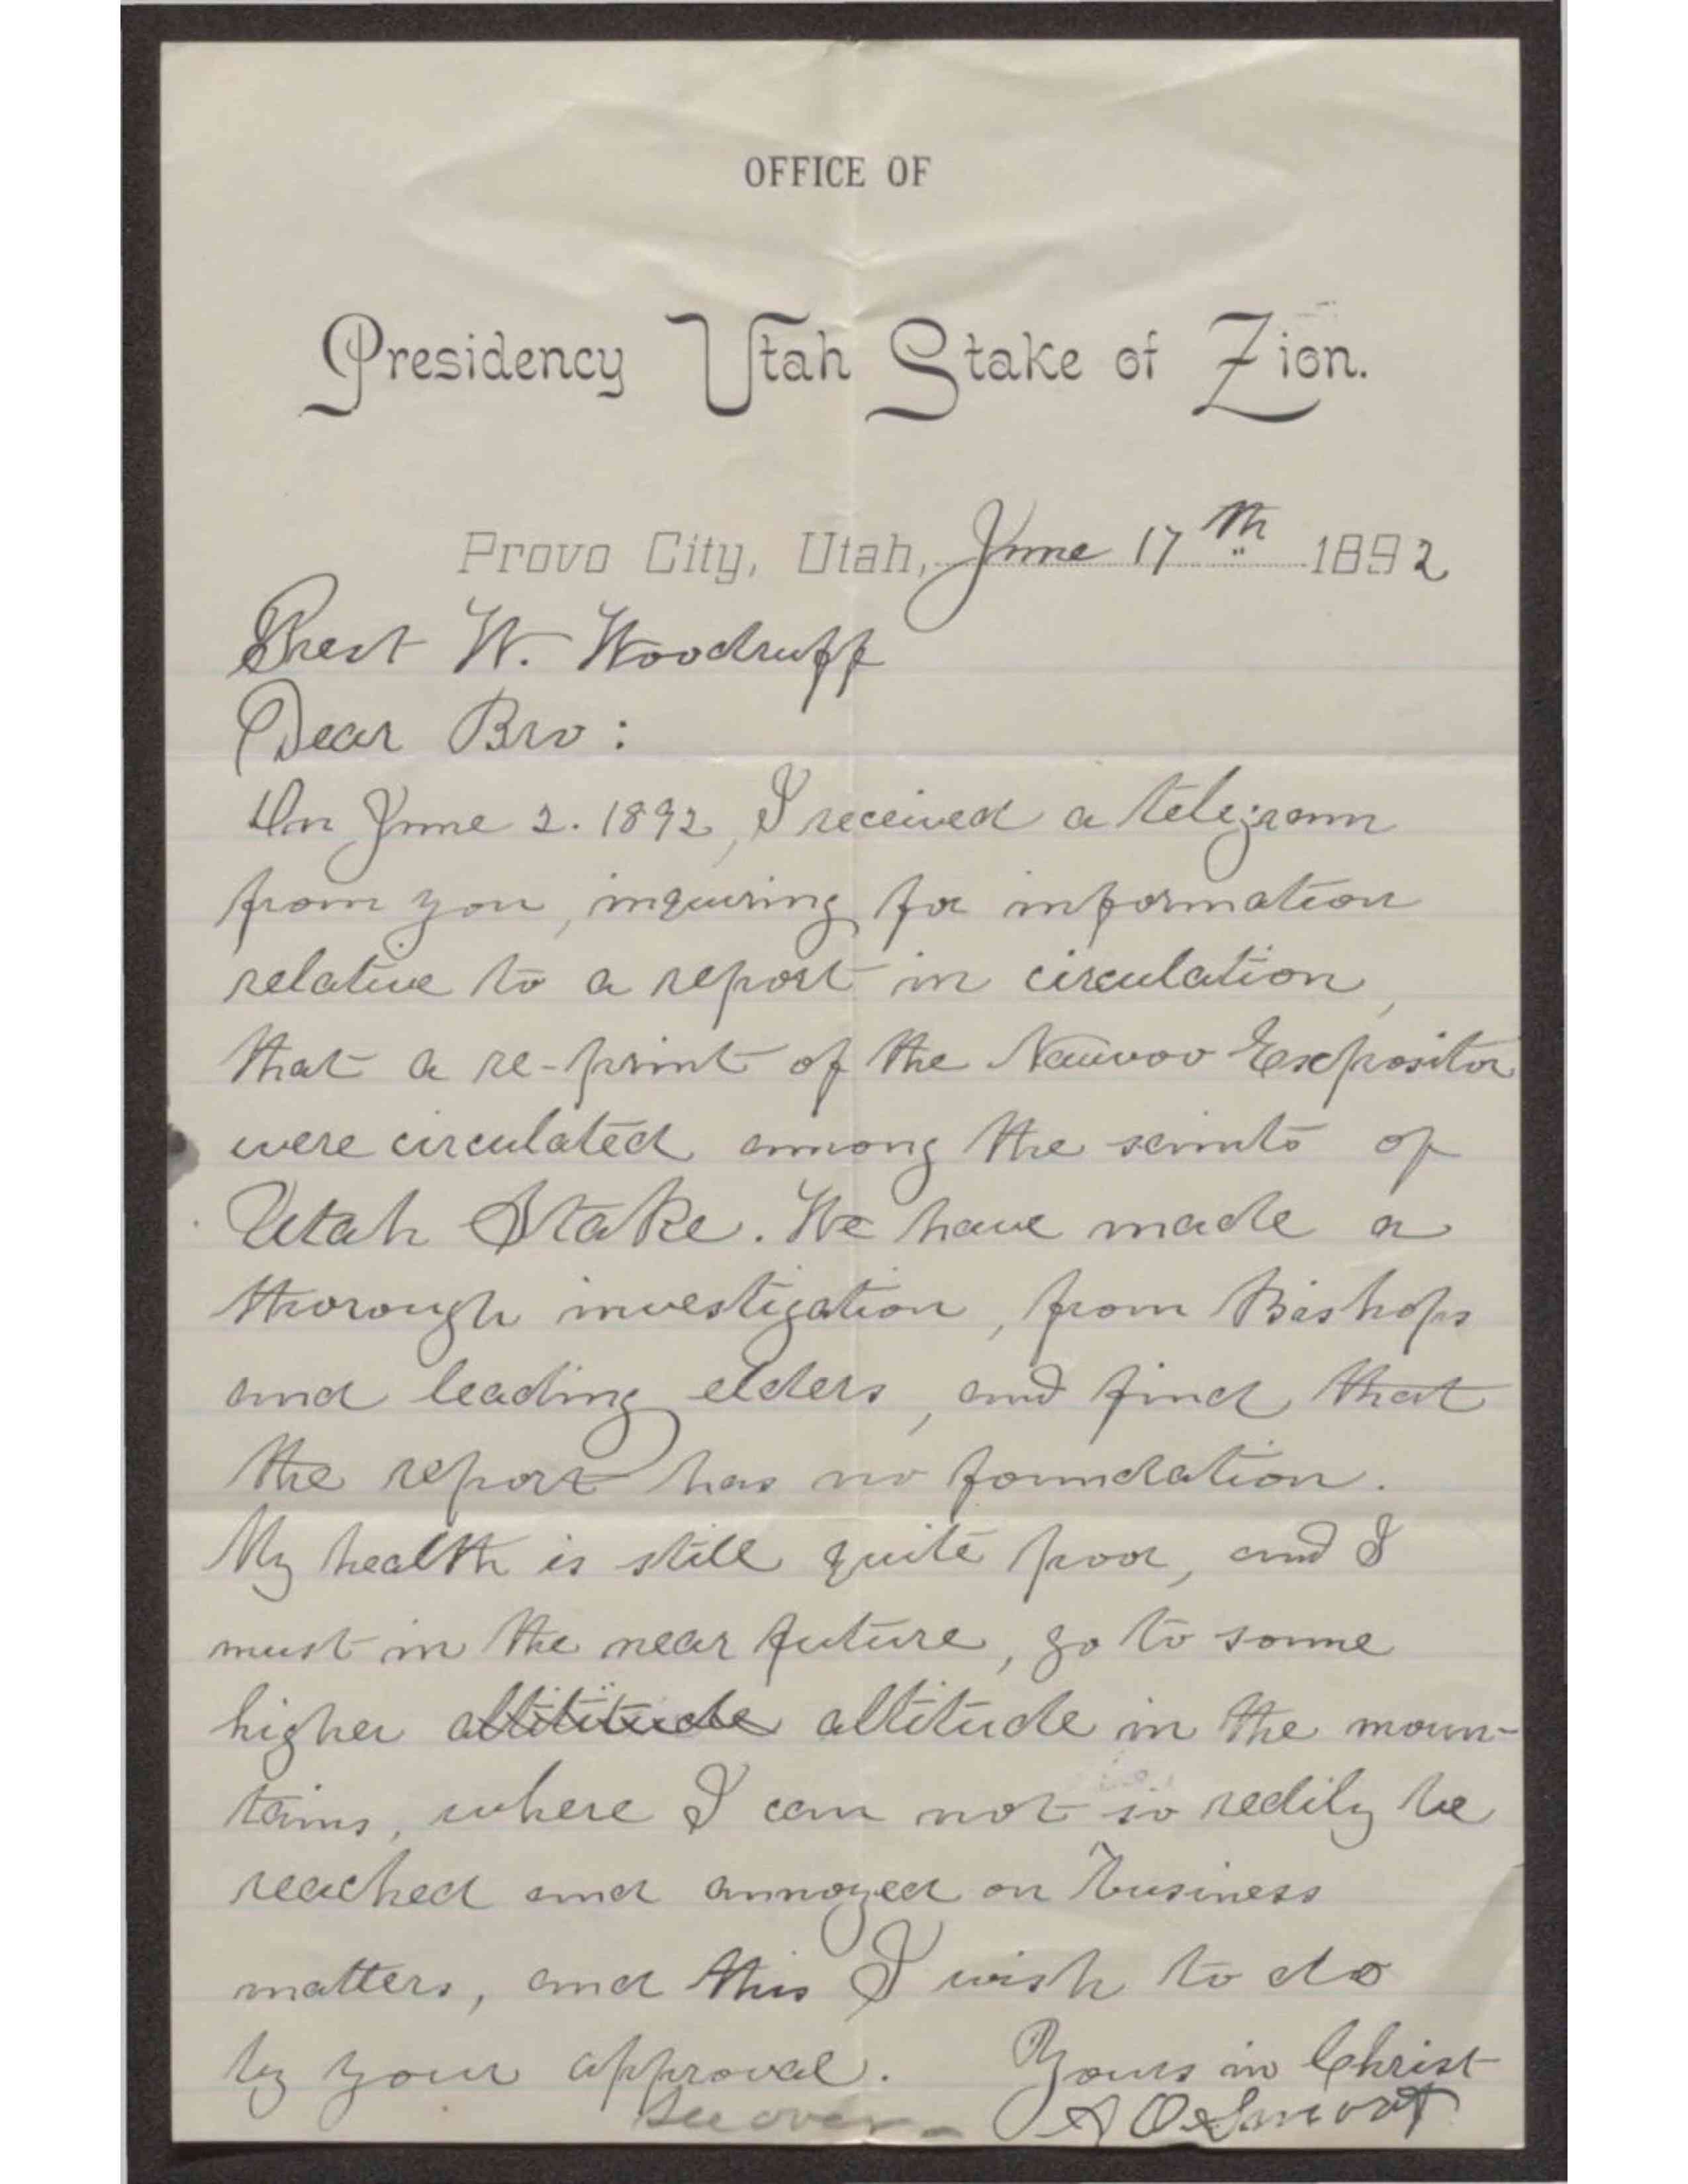 OFFICE OF
Presidency Utah Stake of Zion.
Provo City, Utah, June 17th 1892
Prest W. Woodruff
Dear Bro:
On June 2. 1892, I received a telegram
from you, inquiring for information
relative to a report in circulation,
that a re-print of the Nauvoo Expositor
were circulated among the saints of
Utah Stake. We have made a
thorough investigation, from Bishops
and leading elders, and find that
the report has no foundation.
My health is still quite poor, and I
must in the near future, go to some
higher altitude in the moun-
tains, where I can not so redily be
reached and annoyed on business
matters, and this I wish to do
by your approval. Yours in Christ
See over - A O Smoot